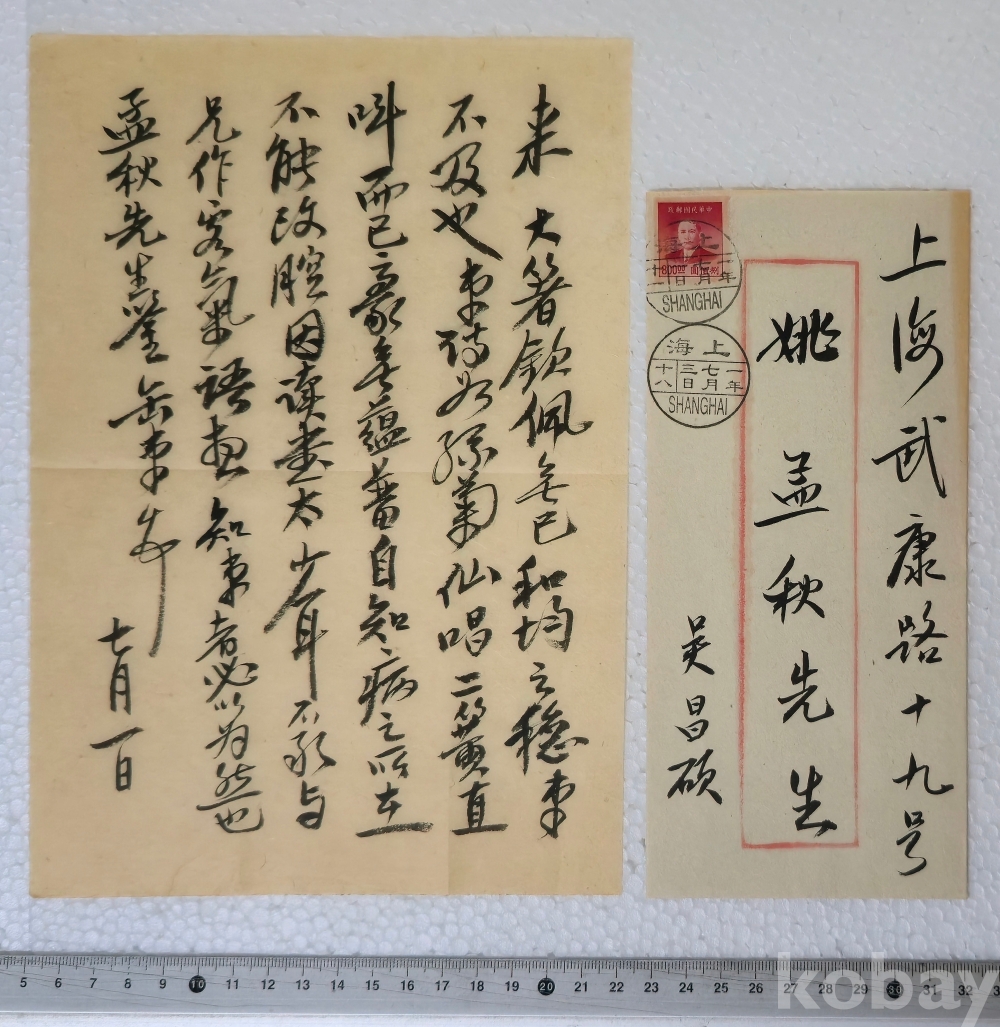 来 大著钦佩无已和均之稳東
不及也東诗如孫菊仙唱二簧直
叫而已豪无蕴蓄自知病之所在
不能改腔因读书太少耳 不敢与
兄作客气语想知東者必以为然也
孟秋先生鉴 缶東
七月一日
上海武康路十九号
姚孟秋先生
吴昌硕
中華民国郵政
800 00
上海
七月
年
日
SHANGHAI
上海
十八 三日 七月 一年
SHANGHAI
5 6 7 8 9 10 11 12 13 14 15 16 17 18 19 20 21 22 23 24 25 26 27 28 29 30 31 32
kobay